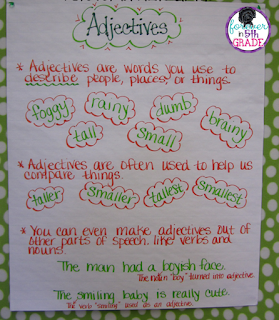 forever
n 5th
GRADE
Adjectives
* Adjectives are words you use to
describe people, places, or things.
foggy rainy dumb brainy
tall small
* Adjectives are often used to help us
compare things.
taller smaller tallest smallest
* You can even make adjectives out of
other parts of speech. like verbs and
nouns.
The man had a boyish face.
The noun "boy" turned into adjective.
The smiling baby is really cute.
The verb "smiling" used as an adjective.